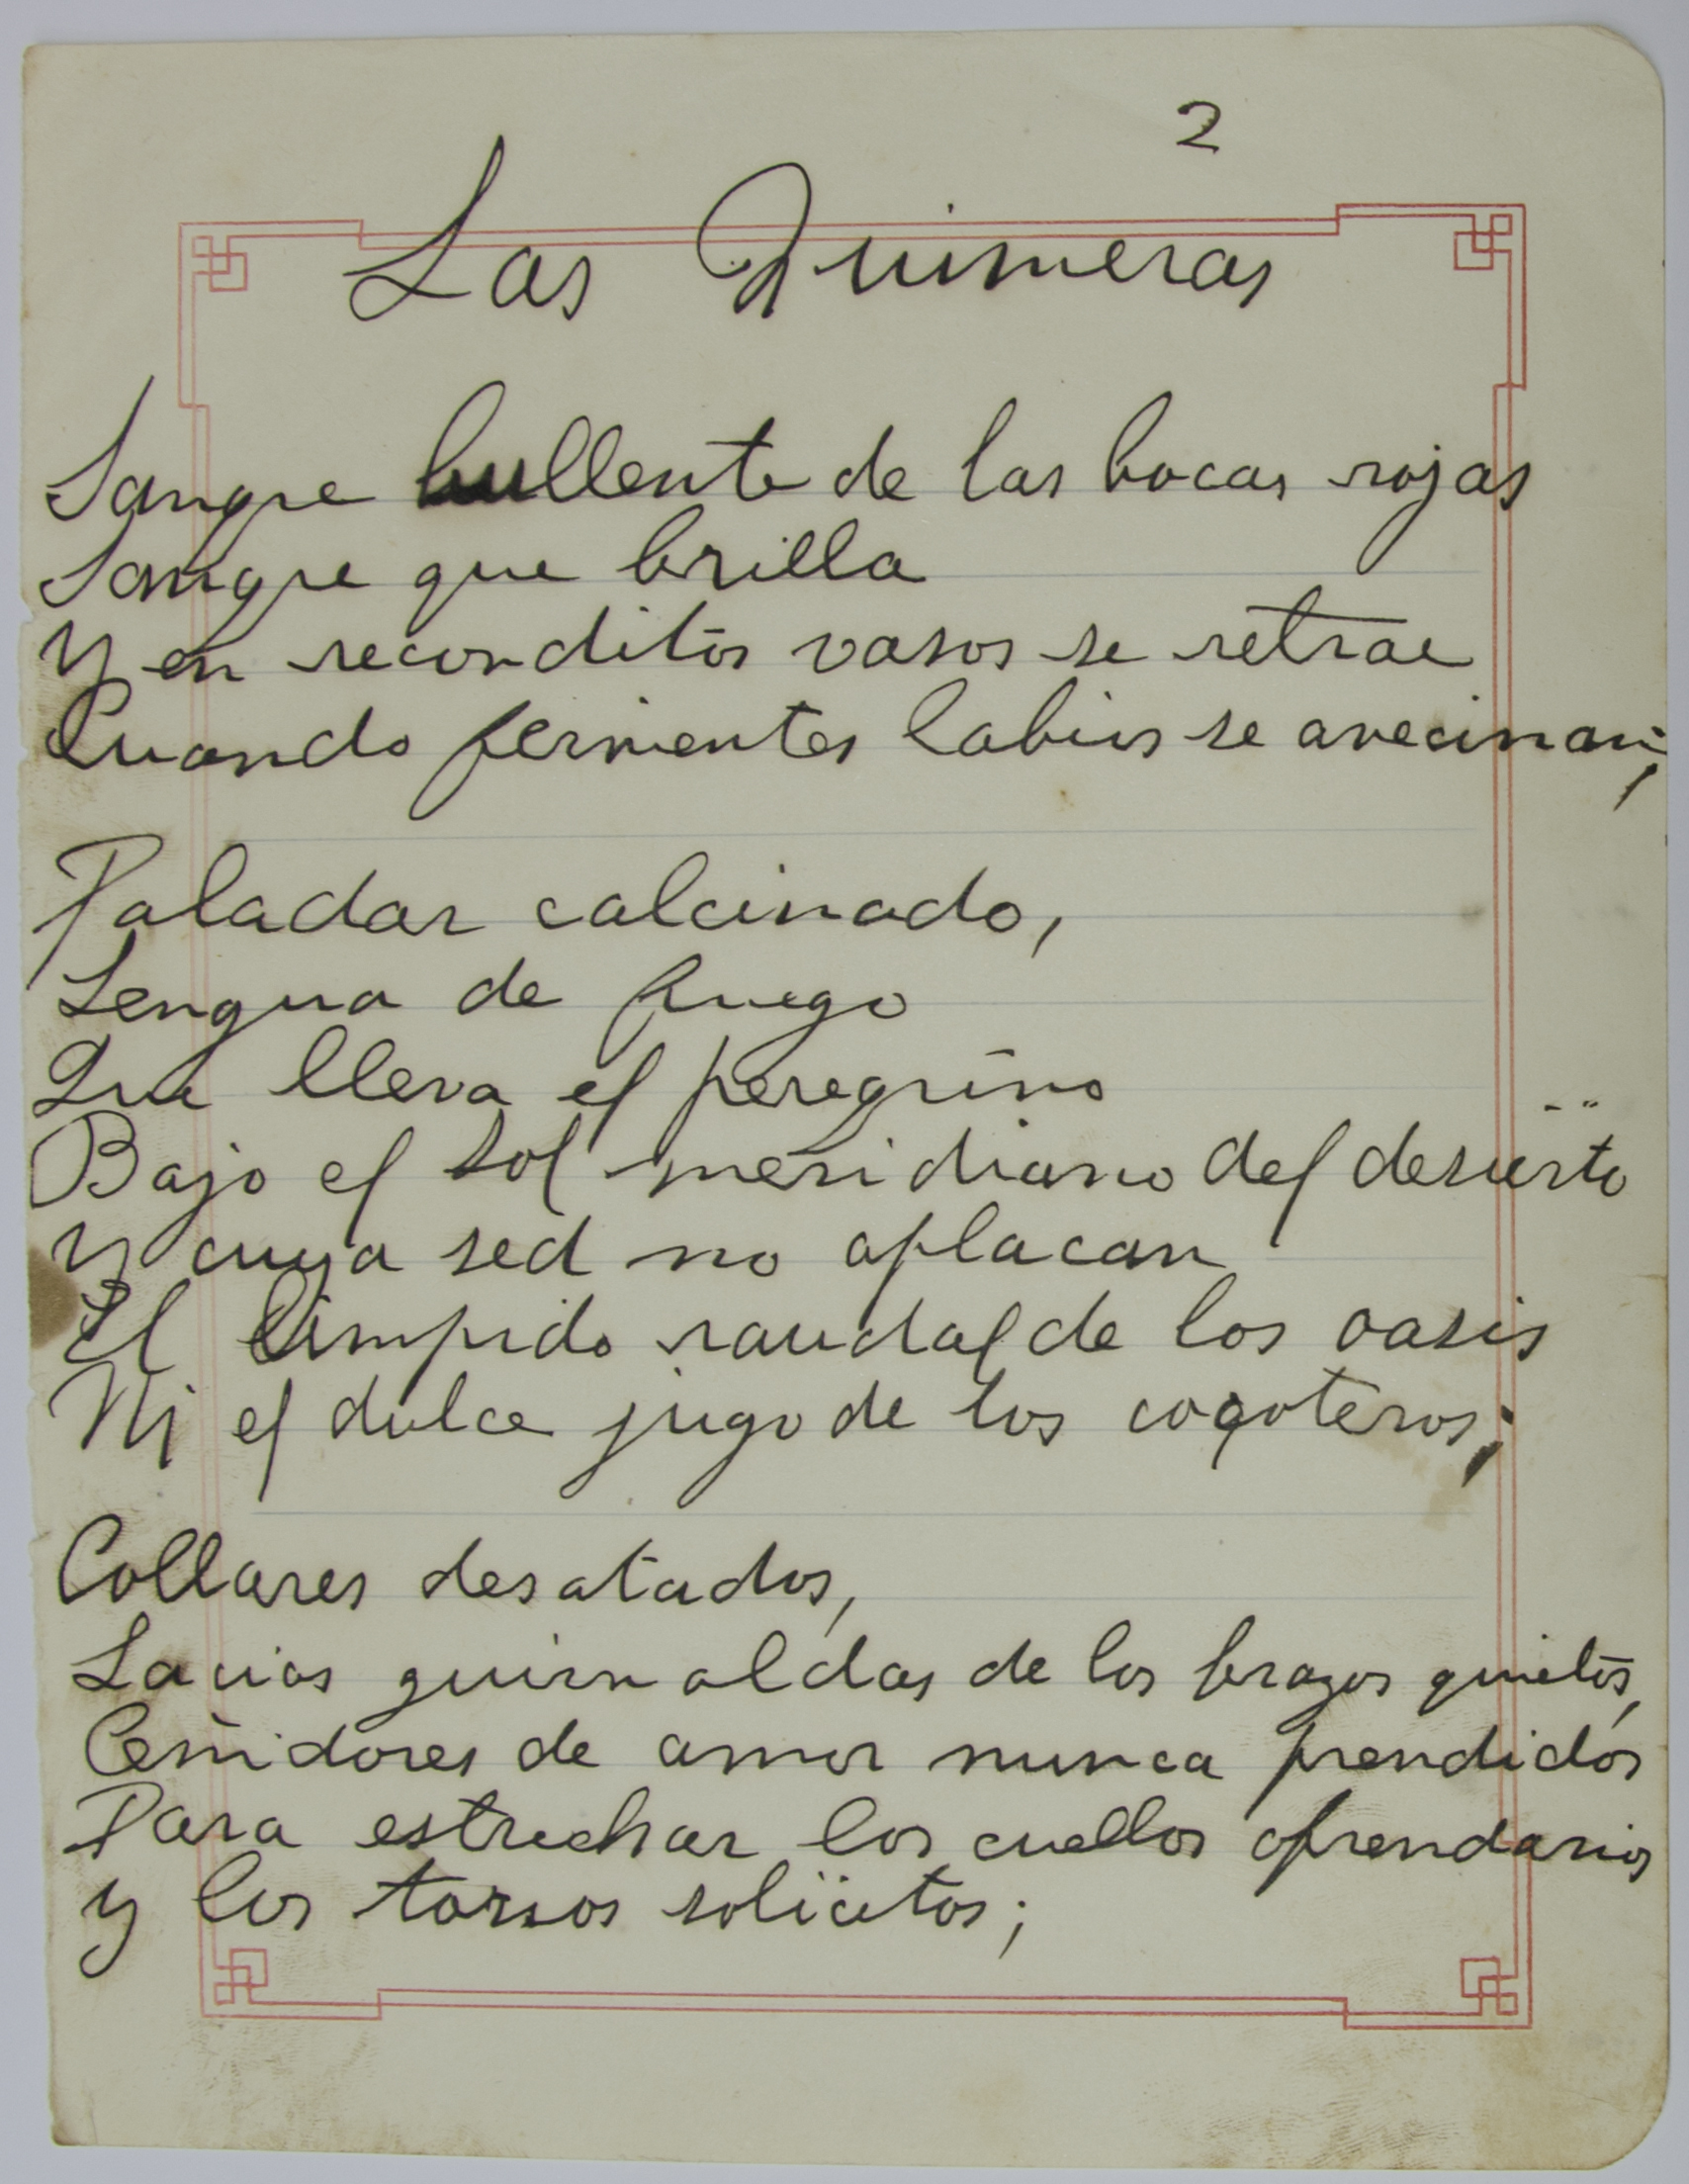 2
Las Quimeras
Sangre bullente de las bocas rojas
Sangre que brilla
Y en reconditos vasos se retrae
Cuando fermentes labios se avecinan;
Paladar calcinado,
Lengua de fuego
Que lleva el peregrino
Bajo el sol meridiano del desierto
Y cuya sed no aplacan
El límpido raudal de los oasis
Ni el dulce jugo de los cocoteros;
Collares desatados,
Lacias guirnaldas de los brazos quietos,
Ceñidores de amor nunca prendidos
Para estrechar los cuellos ofrendarios
y los torsos solícitos;